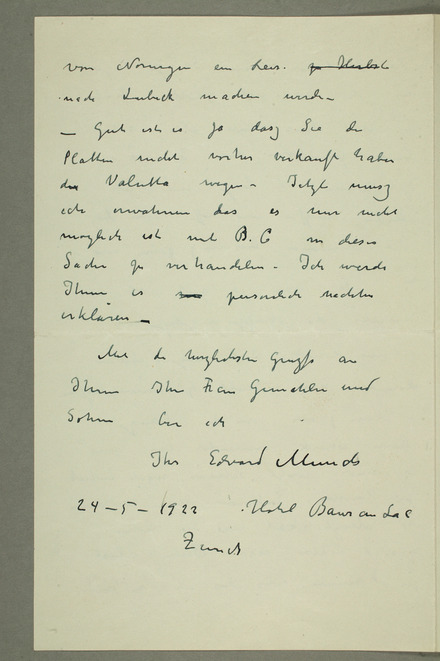 von Norwegen ein Reis. zu Herbst
nach Lubeck machen werde –
– Gut ist es ja dasz Sie die
Platten nicht vorher verkauft haben
der Valutta wegen – Jetzt musz
ich erwahnen das es mir nicht
mozglich ist mit B. C in dieser
Sache zu verhandeln – Ich werde
Ihnen es personlich nachher
erklären –
Mit die herzlichsten Grusze an
Ihnen Ihr Frau Gemahlin und
Sohne bin ich
Ihr Edvard Munch
24–5–1922 Hotel Baur au Lac
Zurich